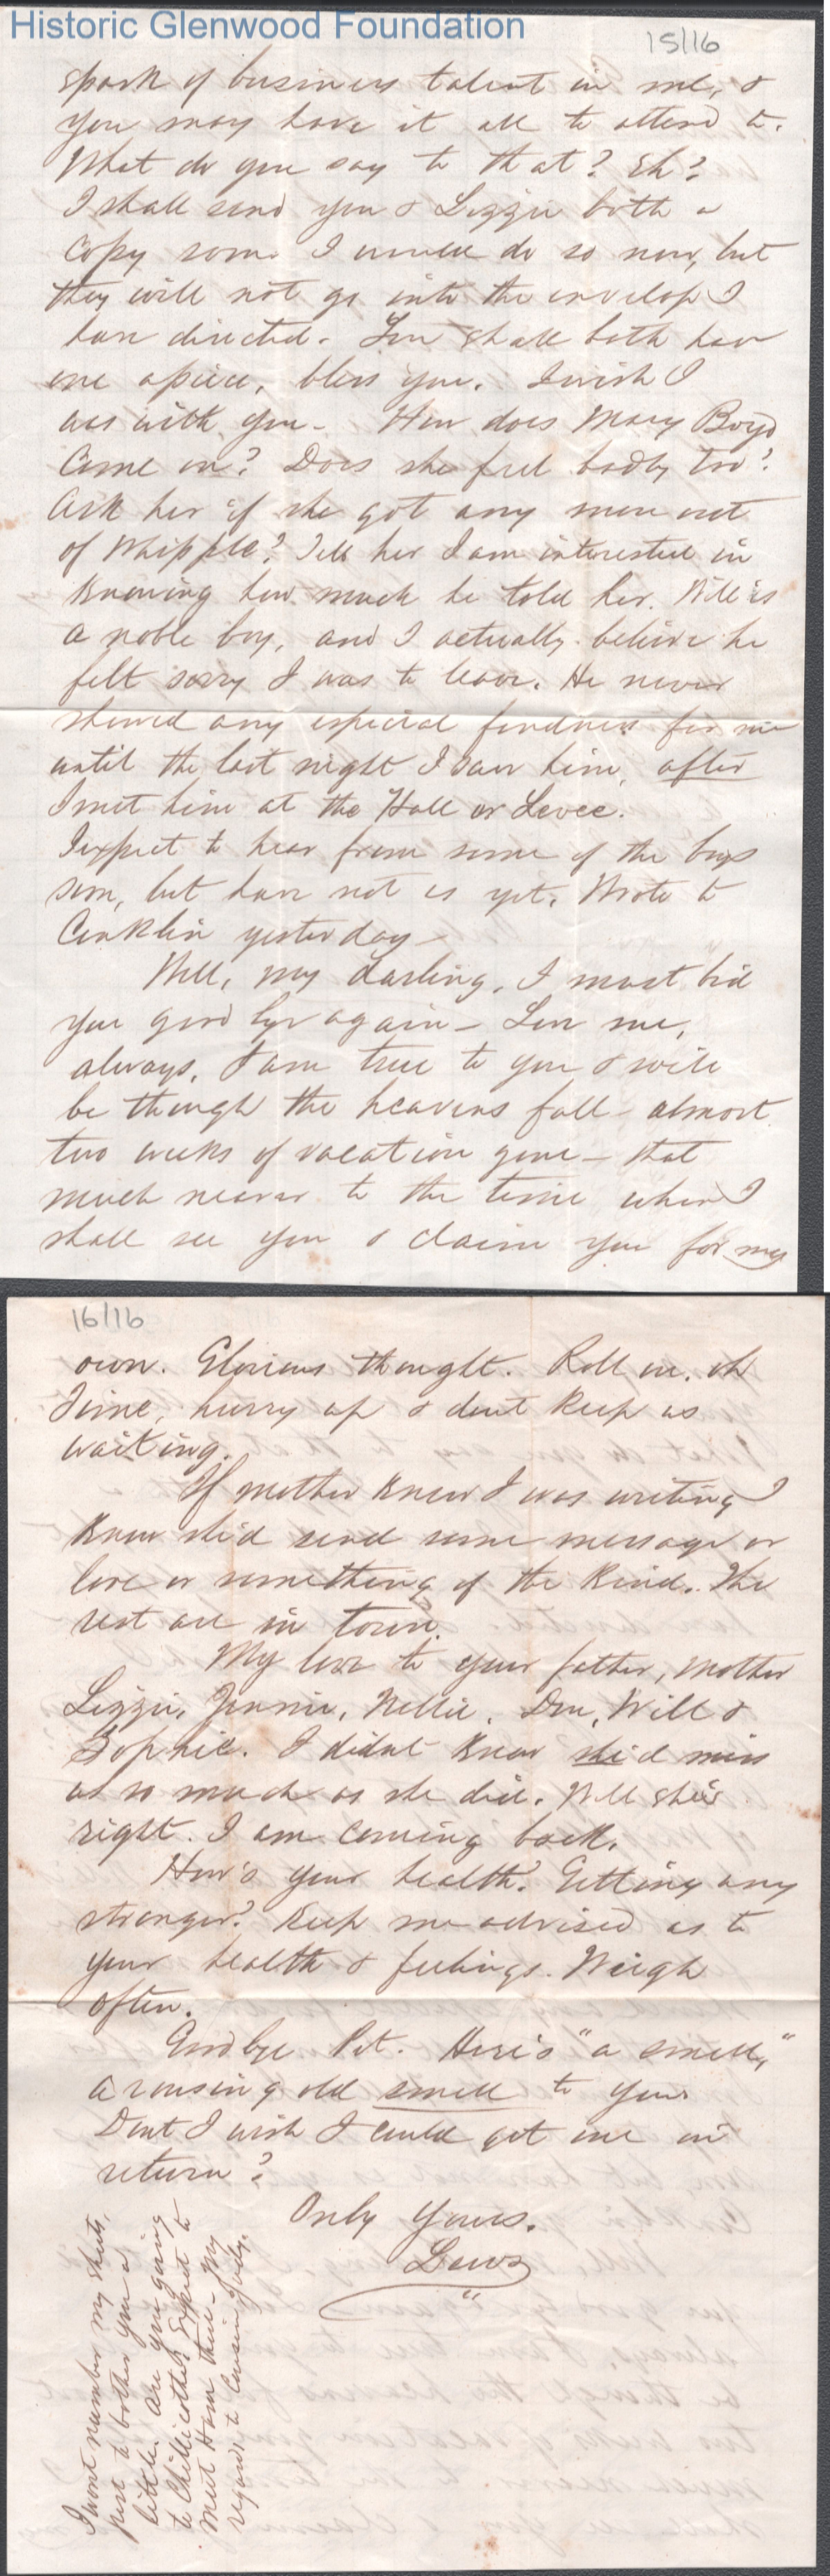 Historic Glenwood Foundation
15/16
spark of business talent in me, &
you may have it all to attend to.
What do you say to that? Eh?
I shall send you & Lizzie both a
copy soon. I would do so now, but
they will not go into the envelop I
have directed. You shall both have
one apiece, bless you. I wish I
was with you - How does Mary Boyd
come on? Does she feel badly too?
Ask her if she got any more out
of Whipple? Tell her I am interested in
knowing how much he told her. Will is
a noble boy, and I actually believe he
felt sorry I was to leave. He never
showed any especial fondness for me
until the last night I saw him, after
I met him at the Hall or Levee.
I expect to hear from some of the boys
soon, but have not as yet. Wrote to
Conklin yesterday -
Well, my darling, I must bid
you good bye again - Love me,
always. I am true to you & will
be though the heavens fall - almost
two weeks of vacation gone - that
much nearer to the time when I
shall see you & claim you for my
16/16
own. Glorious thought. Roll on, oh
Time, hurry up & dont keep us
waiting.
If mother knew I was writing I
know she'd send some message or
love or something of the kind. The
rest are in town.
My love to your father, mother
Lizzie, Jennie, Nellie, Don, Will &
Sophie. I didnt know she'd miss
us so much as she did. Well she's
right. I am coming back.
How's your health? Getting any
stronger? Keep me advised as to
your health & feelings. Weigh
often.
Good bye Pet. Here's "a smell,"
a rousing old smell to you.
Dont I wish I could get one in
return?
Only Yours.
Lewis
I wont number my sheets,
just to bother you a
little. Are you going
to Chillicothe? Expect to
meet Ham there - My
regards to Cousin Judy.